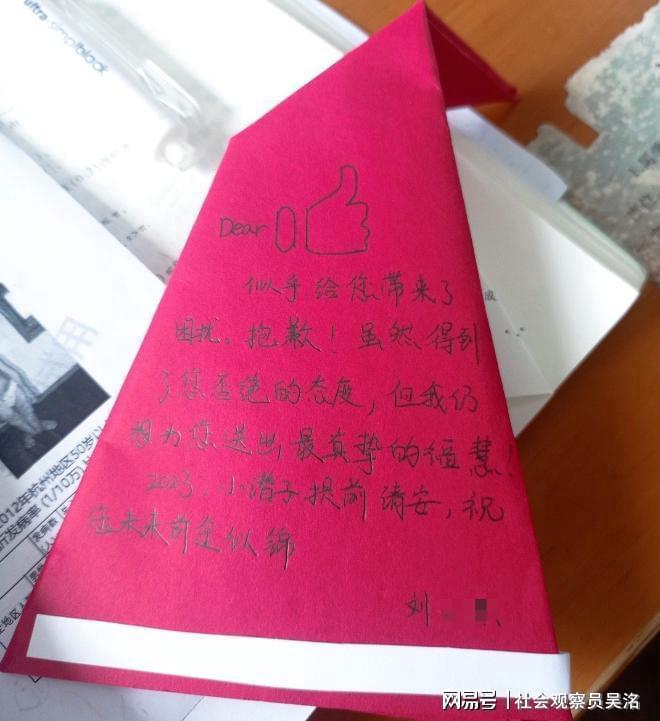 ultra simplblack
Dear
似乎给您带来了
困扰。抱歉！虽然得到
了您拒绝的态度，但我仍
想为您送出最真挚的福慧！
2023，小潜子提前请安，祝
您未来前途似锦
刘
成
用
2012年杭州地区50岁以
(1/10万)
网易号 | 社会观察员吴洺